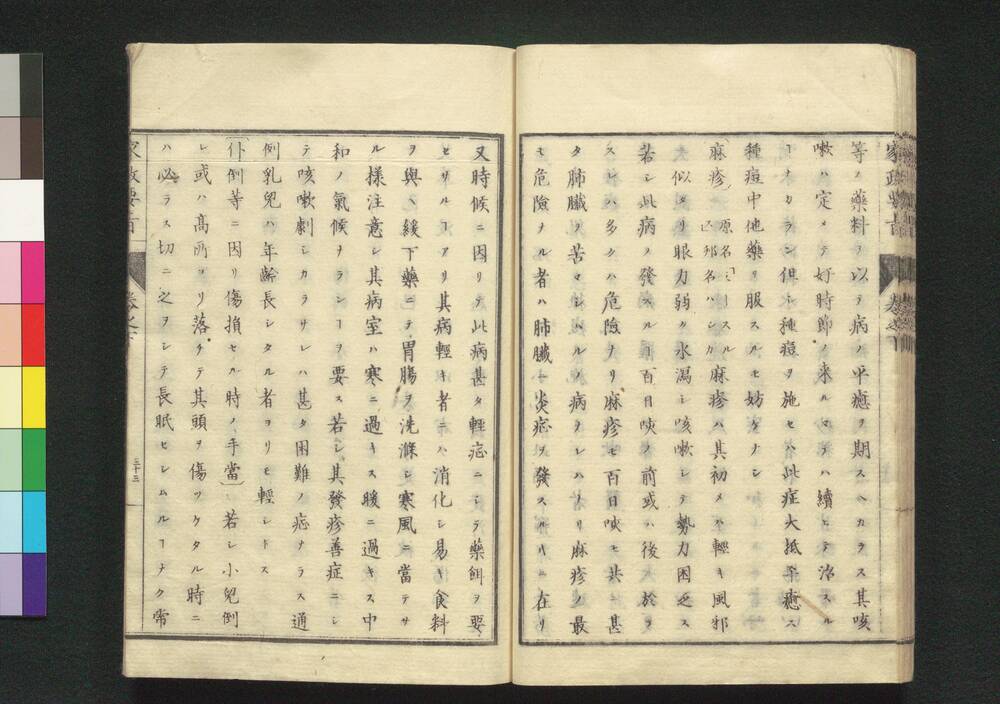 等ノ藥料ヲ以テ病ノ平癒ヲ期スヘカラス其咳
嗽ハ定メテ好時節ノ来ルマテハ續ヒテ治スル
ヿナカラン但シ種痘ヲ施セハ此症大抵平癒ス
種痘中他藥ヲ服スルモ妨ケナシ
麻疹 原名ミースル 邦名ハシカ 麻疹ハ其初メハ輕キ風邪
ニ似タリ眼力弱ク水漏シ咳嗽シテ勢力困乏ス
若シ此病ノ發スルヿ百日咳ノ前或ハ後ニ於テ
スレハ多クハ危險ナリ麻疹モ百日咳モ共ニ甚
タ肺臓ヲ苦シムルノ病タレハナリ麻疹ノ最
モ危險ナル者ハ肺臓ニ炎症ヲ發スルトキニ在リ
又時候ニ因リテ此病甚タ輕症ニシテ藥餌ヲ要
セサルヿアリ其病輕キ者ニハ消化シ易キ食料
ヲ與ヘ緩下藥ニテ胃腸ヲ洗滌シ寒風ニ當テサ
ル樣注意シ其病室ハ寒ニ過キス暖ニ過キス中
和ノ氣候ヲラシムヿヲ要ス若シ其發疹善症ニシ
テ咳嗽劇シカラサレハ甚タ困難ノ症ナラス通
例乳兒ハ年齡長シタル者ヨリモ輕シトス
〔仆倒等ニ因リ傷損セル時ノ手當〕若シ小兒倒
レ或ハ高所ヨリ落チテ其頭ヲ傷ツケタル時ニ
ハ必ラス切ニ之ヲシテ長眠セシムルヿナク常
卷之下
三十三